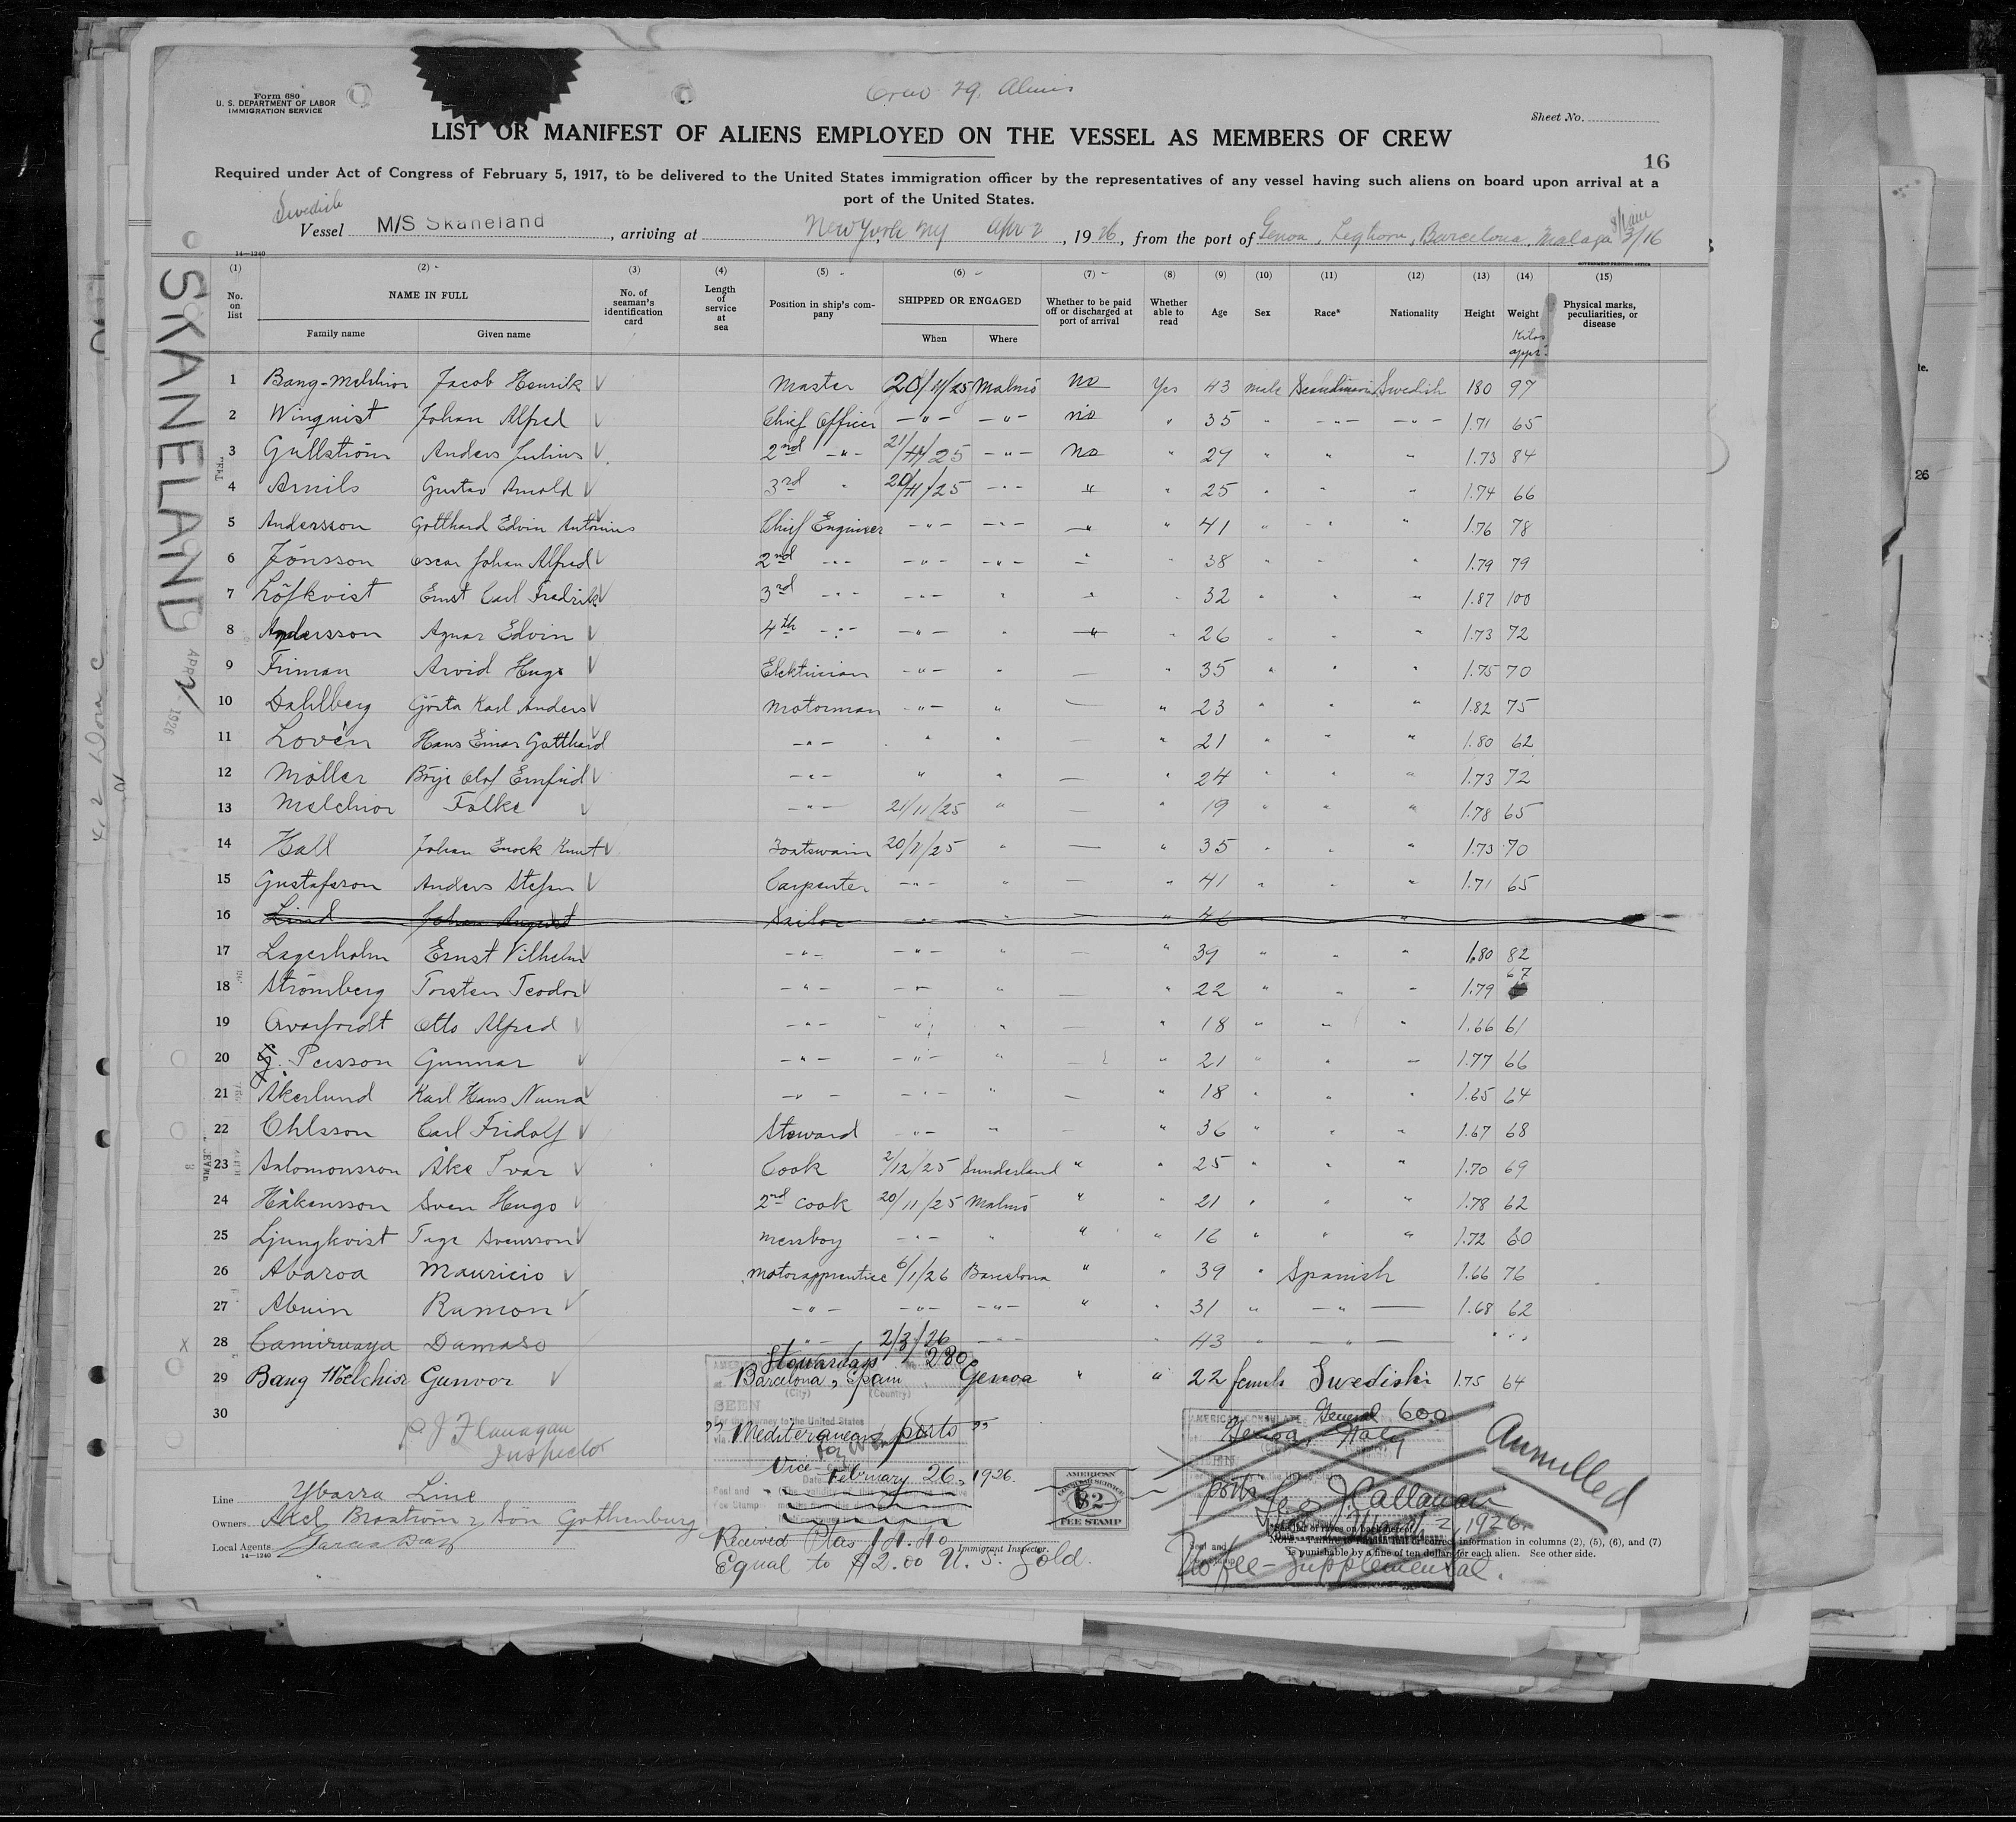 Form 680
U. S. DEPARTMENT OF LABOR
IMMIGRATION SERVICE
Crew 29 Aliens
Sheet No.
LIST OR MANIFEST OF ALIENS EMPLOYED ON THE VESSEL AS MEMBERS OF CREW
16
Required under Act of Congress of February 5, 1917, to be delivered to the United States immigration officer by the representatives of any vessel having such aliens on board upon arrival at a
port of the United States.
Swedish
Vessel M/S Skaneland, arriving at New York NY Apr 2, 1926, from the port of Genoa, Leghorn, Barcelona, Malaga Spain 3/16
14—1240
GOVERNMENT PRINTING OFFICE
(1) (2) (3) (4) (5) (6) (7) (8) (9) (10) (11) (12) (13) (14) (15)
No. on list NAME IN FULL No. of seaman's identification card Length of service at sea Position in ship's company SHIPPED OR ENGAGED Whether to be paid off or discharged at port of arrival Whether able to read Age Sex Race* Nationality Height Weight Physical marks, peculiarities, or disease
Family name Given name When Where Kilos appr.
SKANELAND
APR 2 1926
1 Bang-Melchior Jacob Henrik √ Master 20/11/25 Malmö no Yes 43 male Scandinavian Swedish 180 97
2 Winquist Johan Alfred √ Chief Officer —"— —"— no " 35 " —"— —"— 1.71 65
3 Gullström Anders Julius √ 2nd —"— 21/11/25 —"— No " 29 " " " 1.73 84
4 Arnils Gustav Arnold √ 3rd " 20/11/25 —"— " " 25 " " " 1.74 66
5 Andersson Gotthard Edvin Antonius √ Chief Engineer —"— —"— " " 41 " " " 1.76 78
6 Jönsson Oscar Johan Alfred √ 2nd —"— —"— —"— " " 38 " " " 1.79 79
7 Löfkvist Ernst Carl Fredrik √ 3rd —"— —"— " " " 32 " " " 1.87 100
8 Andersson Agnar Edvin √ 4th —"— —"— " " " 26 " " " 1.73 72
9 Friman Arvid Hugo √ Elektrician —"— " — " 35 " " " 1.75 70
10 Dahlberg Gösta Karl Anders √ Motorman —"— " — " 23 " " " 1.82 75
11 Lovén Hans Einar Gotthard √ —"— " " — " 21 " " " 1.80 62
12 Möller Börje Olof Emfrid √ —"— " " — " 24 " " " 1.73 72
13 Melchior Falke √ —"— 21/11/25 " — " 19 " " " 1.78 65
14 Hall Johan Enock Knut √ Boatswain 20/11/25 " — " 35 " " " 1.73 70
15 Gustafsson Anders Stefan √ Carpenter —"— " — " 41 " " " 1.71 65
16 Lind Johan August Sailor —"— " — " 46 " " "
17 Lagerholm Ernst Vilhelm √ —"— —"— " — " 39 " " " 1.80 82
18 Strömberg Torsten Teodor √ —"— —"— " — " 22 " " " 1.79 67
19 Qvarfordt Otto Alfred √ —"— " " — " 18 " " " 1.66 61
20 Persson Gunnar √ —"— —"— " — " 21 " " " 1.77 66
21 Åkerlund Karl Hans Numa √ —"— —"— " — " 18 " " " 1.65 64
22 Ohlsson Carl Fridolf √ Steward —"— " — " 36 " " " 1.67 68
23 Salomonsson Åke Ivar √ Cook 2/12/25 Sunderland " " 25 " " " 1.70 69
24 Håkansson Sven Hugo √ 2nd Cook 20/11/25 Malmö " " 21 " " " 1.78 62
25 Ljungkvist Tage Svensson √ Messboy —"— " " " 16 " " " 1.72 60
26 Abaroa Mauricio √ Motorapprentice 6/1/26 Barcelona " " 39 " Spanish 1.66 76
27 Abuin Ramon √ —"— —"— —"— " " 31 " —"— 1.68 62
X 28 Camiruaga Damaso —"— 2/3/26 —"— " 43 " —"—
29 Bang Melchior Gunvor √ Stewardess Genoa " " 22 female Swedish 1.75 64
30
280
Barcelona, Spain
(City) (Country)
SEEN
For the journey to the United States
via "Mediteranean ports"
Vice
Date February 26, 1926.
P J Flanagan
Inspector
AMERICAN CONSULATE General 600
Genoa, Italy
ports
Leo J. Callanan
March 2, 1926.
No fee - Supplemental.
Annulled
AMERICAN
CONSULAR SERVICE
$2
FEE STAMP
Line Ybarra Line
Owners Axel Broström & Son Gothenburg
Local Agents Garcia Diaz
14—1240
Received Ptas 14.40 Immigrant Inspector.
Equal to $2.00 U. S. Gold.
*See list of races on back hereof.
NOTE.—Failure to furnish full or correct information in columns (2), (5), (6), and (7)
is punishable by a fine of ten dollars for each alien. See other side.